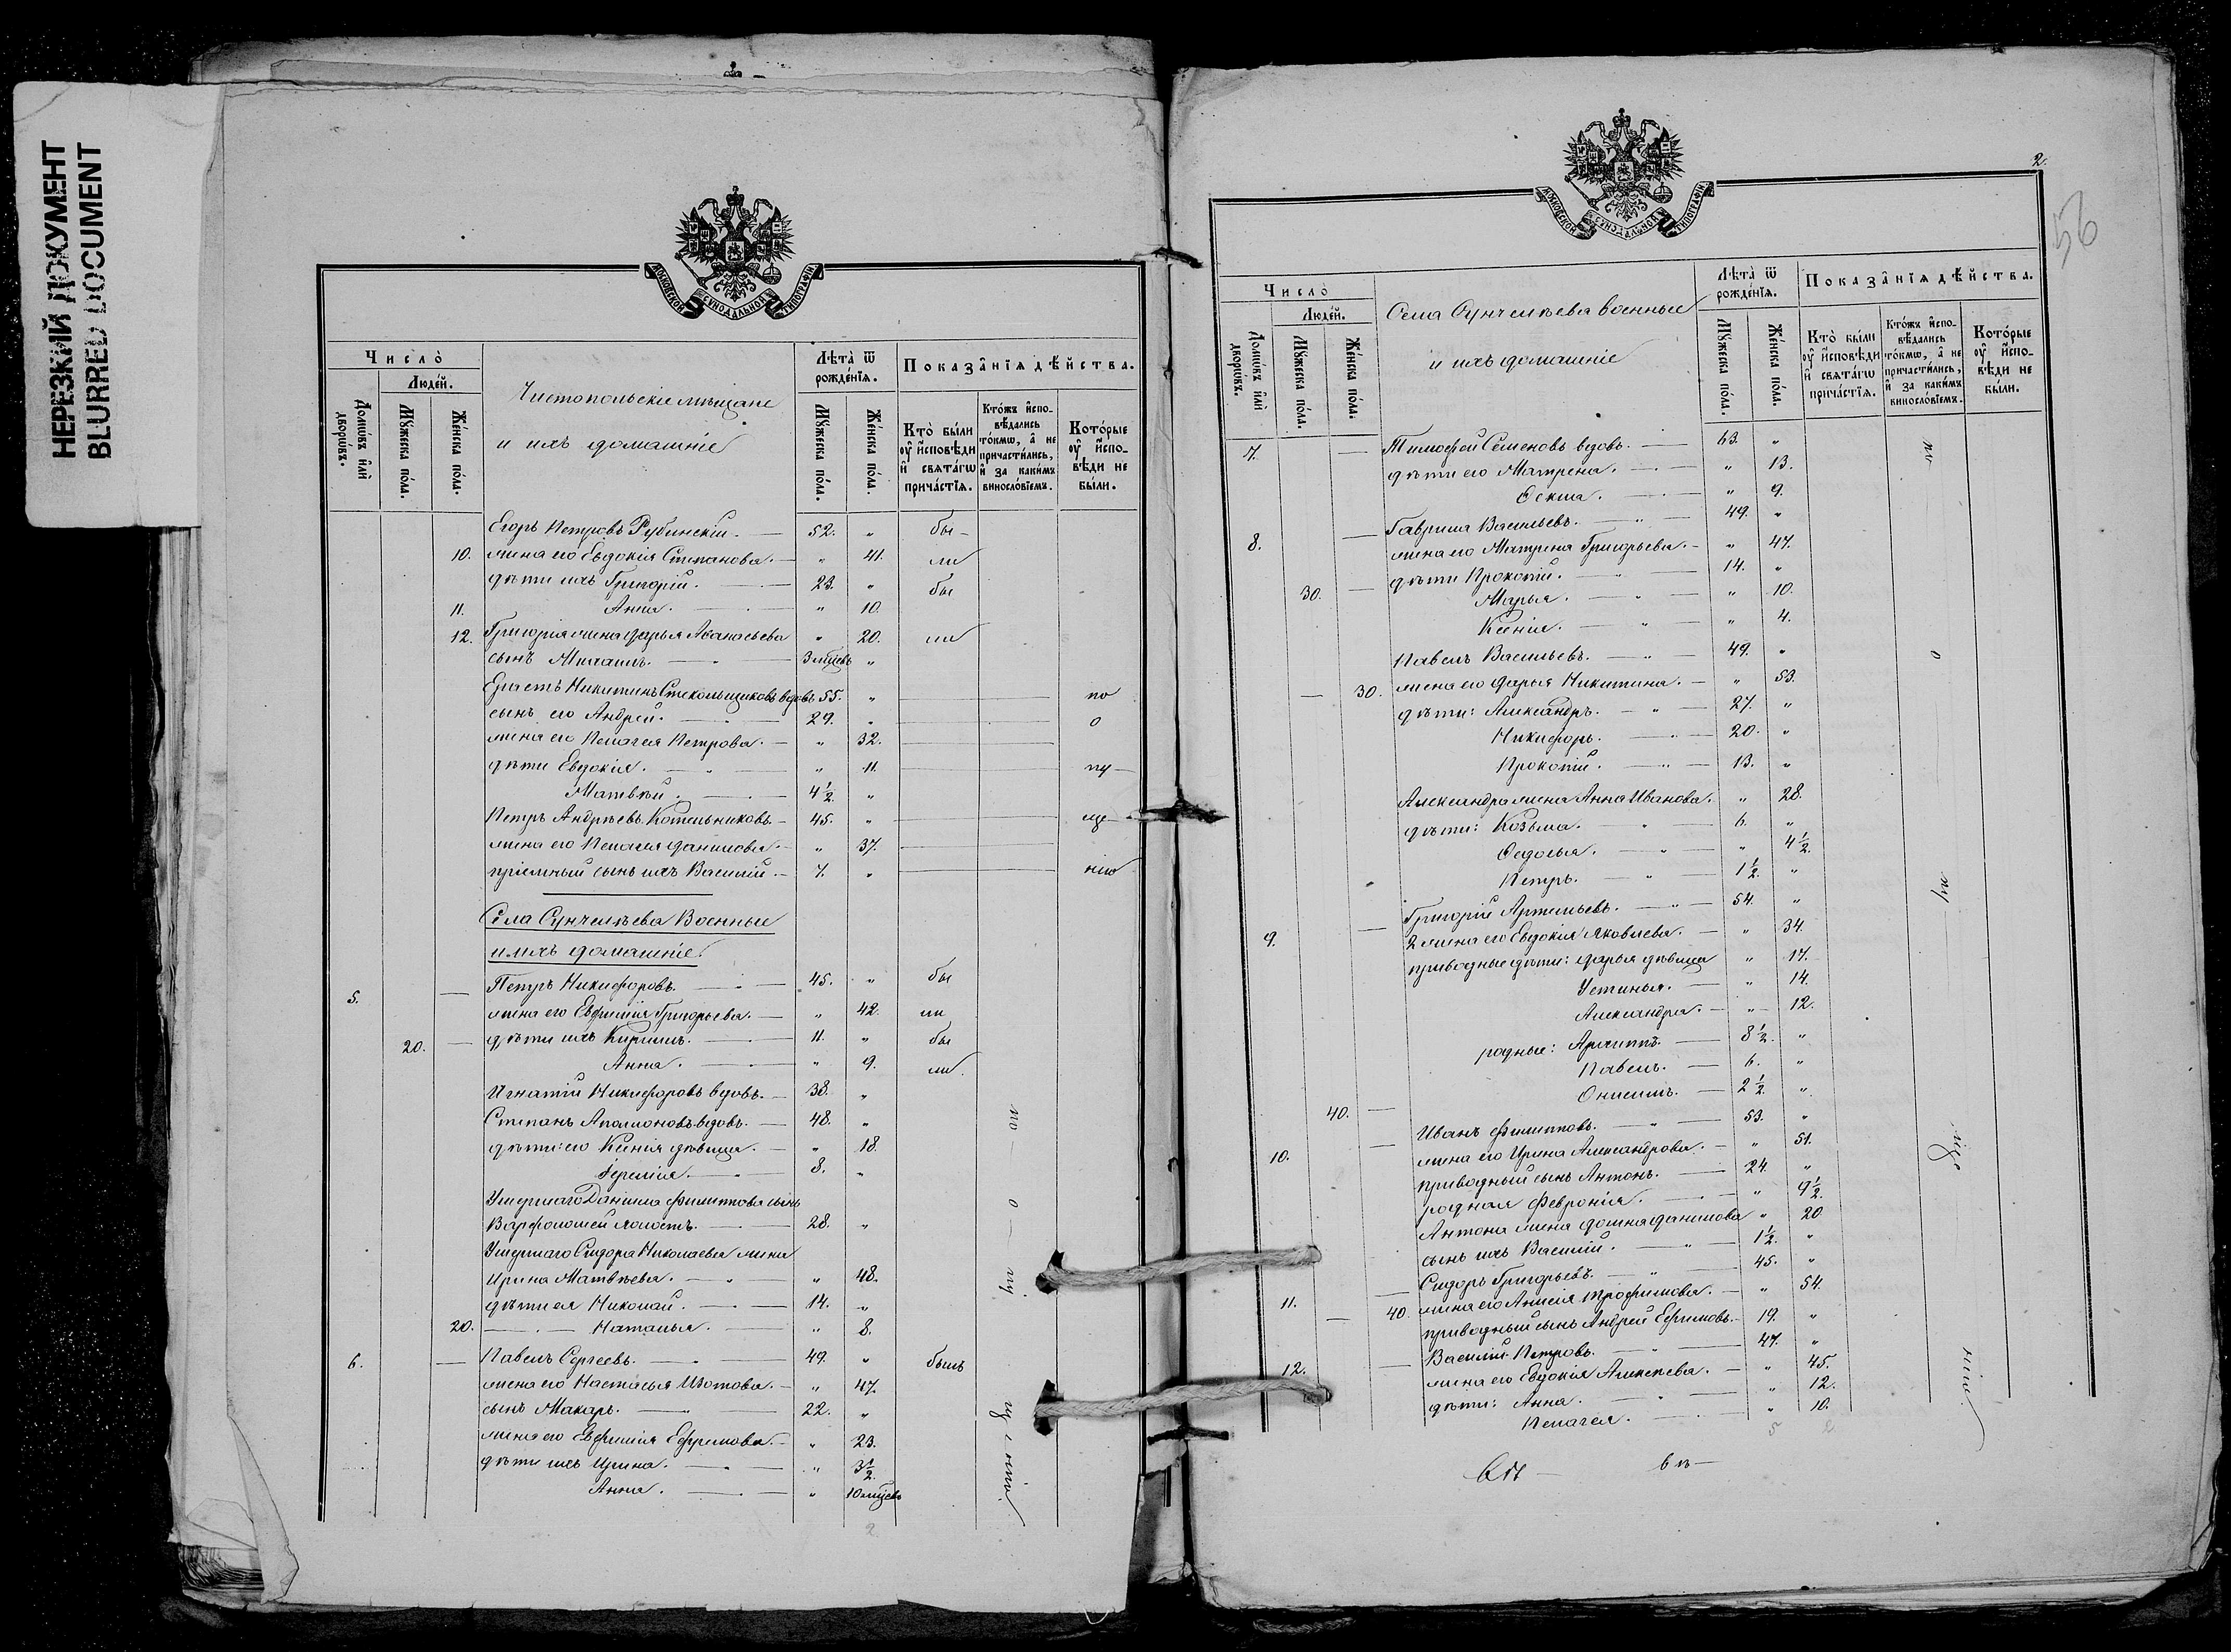 НЕРЕЗКИЙ ДОКУМЕНТ
BLURRED DOCUMENT
МОСКОВСКОЙ СѴНОДАЛЬНОЙ ТИПОГРАФІИ
Число̀
Люде́й.
Домѡ́въ и҆лѝ дворѡ́въ.
Мꙋ́жеска по́ла.
Же́нска по́ла.
Чистопольскіе мѣщане
и ихъ домашніе
Лѣ́та ѿ рожде́нїѧ.
Мꙋ́жеска по́ла.
Же́нска по́ла.
Показа̑нїѧ дѣ́йства.
Кто̀ бы́ли оу҆ и҆́сповѣди и҆ свѧта́гѡ прича́стїѧ.
Кто́жъ и҆спо- вѣ́дались то́кмѡ, а҆ не причасти́лись, и҆ за каки́мъ виносло́вїемъ.
Кото́рые оу҆ и҆́спо- вѣди не бы́ли.
Егоръ Петровъ Рубинскій. 52. " бы-
10. жена его Евдокія Степанова. " 41. ли
дѣти ихъ Григорій. 23. " бы
11. Анна. " 10.
12. Григорія жена Дарья Аѳанасьева " 20. ли
сынъ Михаилъ. 3 мѣсяцъ "
Ерастъ Никитинъ Стекольщиковъ вдовъ 55. " по
сынъ его Андрей. 29. " о
жена его Пелагея Петрова. " 32.
дѣти Евдокія. " 11. пу
Матвѣй. 4½ "
Петръ Андреевъ Котельниковъ. 45. " ще
жена его Пелагея Данилова. " 37.
пріемный сынъ ихъ Василій. 7. " нію
Села Сунчелѣева Военные
и ихъ домашніе.
5. Петръ Никифоровъ. 45. " бы
жена его Евфимія Григорьева. " 42. ли
20. дѣти ихъ Кириллъ. 11. " бы
Анна. " 9. ли
Игнатій Никифоровъ вдовъ. 38. "
Степанъ Аполлоновъ вдовъ. 48. " по
дѣти его Ксенія дѣвица. " 18.
Іеремія. 8. "
Умершаго Даніила Филиппова сынъ
Варфоломей холостъ. 28. " о
Умершаго Сидора Николаева жена
Ирина Матвѣева. " 48. пу
дѣти ея Николай. 14. "
20. Наталья. " 8.
6. Павелъ Сергеевъ. 49. " былъ
жена его Настасья Изотова. " 47.
сынъ Макаръ. 22. "
жена его Евфимія Ефремова. " 23.
дѣти ихъ Ирина. " 3½
Анна. " 10 мѣсяцъ
2
2.
56
МОСКОВСКОЙ СѴНОДАЛЬНОЙ ТИПОГРАФІИ
Число̀
Люде́й.
Домѡ́въ и҆лѝ дворѡ́въ.
Мꙋ́жеска по́ла.
Же́нска по́ла.
Села Сунчелѣева военные
и ихъ домашніе
Лѣ́та ѿ рожде́нїѧ.
Мꙋ́жеска по́ла.
Же́нска по́ла.
Показа̑нїѧ дѣ́йства.
Кто̀ бы́ли оу҆ и҆́сповѣди и҆ свѧта́гѡ прича́стїѧ.
Кто́жъ и҆спо- вѣ́дались то́кмѡ, а҆ не причасти́лись, и҆ за каки́мъ виносло́вїемъ.
Кото́рые оу҆ и҆́спо- вѣди не бы́ли.
7. Тимофей Семеновъ вдовъ. 63. " по
дѣти его Матрена. " 13.
Ѳекла. " 9.
8. Гаврила Васильевъ. 49. "
жена его Матрена Григорьева. " 47.
дѣти Прокопій. 14. "
30. Марья. " 10.
Ксенія. " 4.
Павелъ Васильевъ. 49. " о
30. жена его Дарья Никитина. " 53.
дѣти: Александръ. 27. "
Никифоръ. 20. "
Прокопій. 13. "
Александра жена Анна Иванова. " 28.
дѣти: Козьма. 6. "
Ѳедосья. " 4½
Петръ. 1½ "
Григорій Артемьевъ. 54. " пу
9. 2 жена его Евдокія Яковлева. " 34.
приводные дѣти: Дарья дѣвица " 17.
Устинья. " 14.
Александра. " 12.
родные: Архиппъ. 8½ "
Павелъ. 6. "
Онисимъ. 2½ "
40. Иванъ Филипповъ. 53. "
10. жена его Ирина Александрова. " 51. ще
приводный сынъ Антонъ. 24. "
родная Февронія. " 9½
Антона жена Домна Данилова " 20
сынъ ихъ Василій. 1½ "
Сидоръ Григорьевъ. 45. "
11. 40. жена его Анисія Трофимова. " 54.
приводный сынъ Андрей Ефимовъ. 19. "
Василій Петровъ. 47. " нію
12. жена его Евдокія Алексѣева. " 45.
дѣти: Анна. " 12.
Пелагея. " 10.
5 2